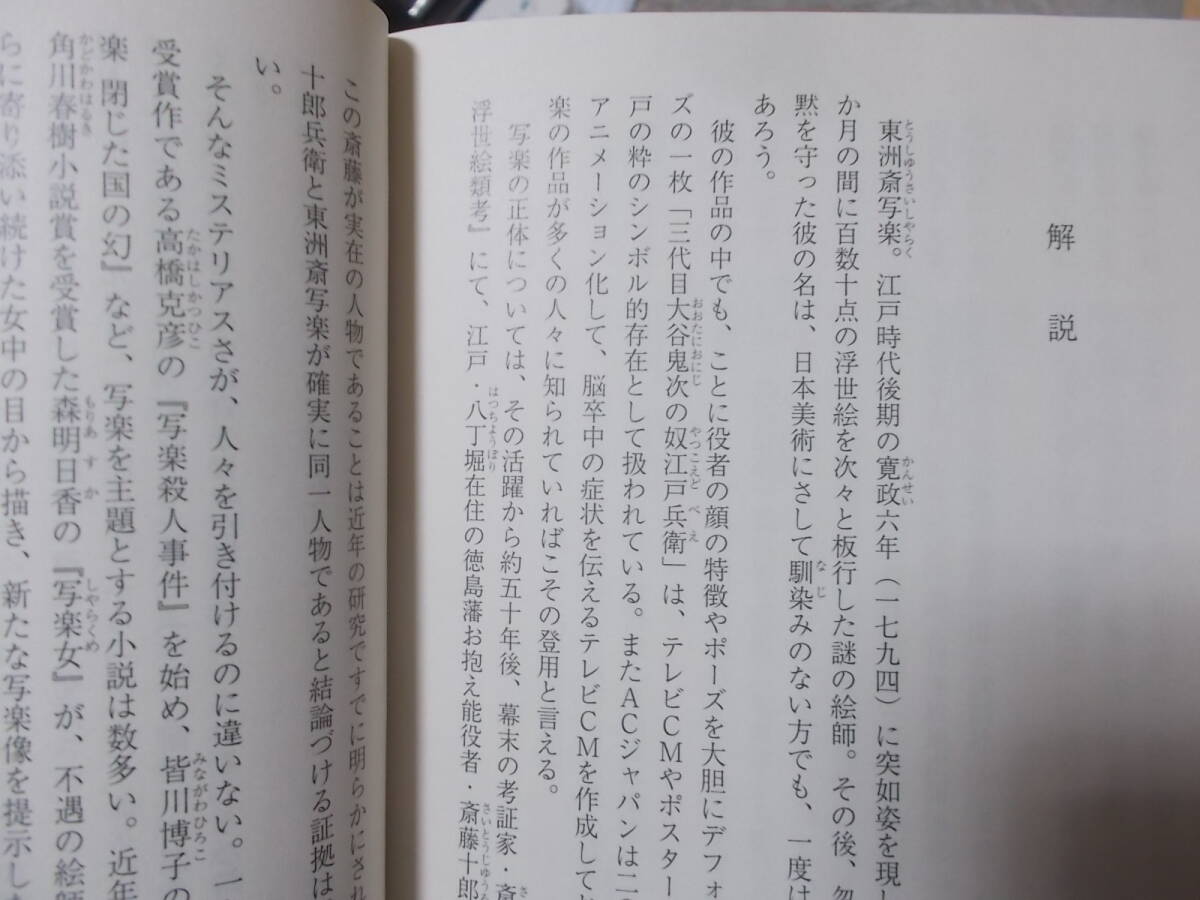 解説
東洲斎写楽。江戸時代後期の寛政六年（一七九四）に突如姿を現し
か月の間に百数十点の浮世絵を次々と板行した謎の絵師。その後、忽
黙を守った彼の名は、日本美術にさして馴染みのない方でも、一度は
あろう。
彼の作品の中でも、ことに役者の顔の特徴やポーズを大胆にデフォ
ズの一枚「三代目大谷鬼次の奴江戸兵衛」は、テレビＣＭやポスター
戸の粋のシンボル的存在として扱われている。またＡＣジャパンは二〇
アニメーション化して、脳卒中の症状を伝えるテレビＣＭを作成して
楽の作品が多くの人々に知られていればこその登用と言える。
写楽の正体については、その活躍から約五十年後、幕末の考証家・斎
浮世絵類考』にて、江戸・八丁堀在住の徳島藩お抱え能役者・斎藤十郎
この斎藤が実在の人物であることは近年の研究ですでに明らかにされ
十郎兵衛と東洲斎写楽が確実に同一人物であると結論づける証拠は
い。
そんなミステリアスさが、人々を引き付けるのに違いない。一
受賞作である高橋克彦の『写楽殺人事件』を始め、皆川博子の
楽 閉じた国の幻』など、写楽を主題とする小説は数多い。近年
角川春樹小説賞を受賞した森明日香の『写楽女』が、不遇の絵師
らに寄り添い続けた女中の目から描き、新たな写楽像を提示し